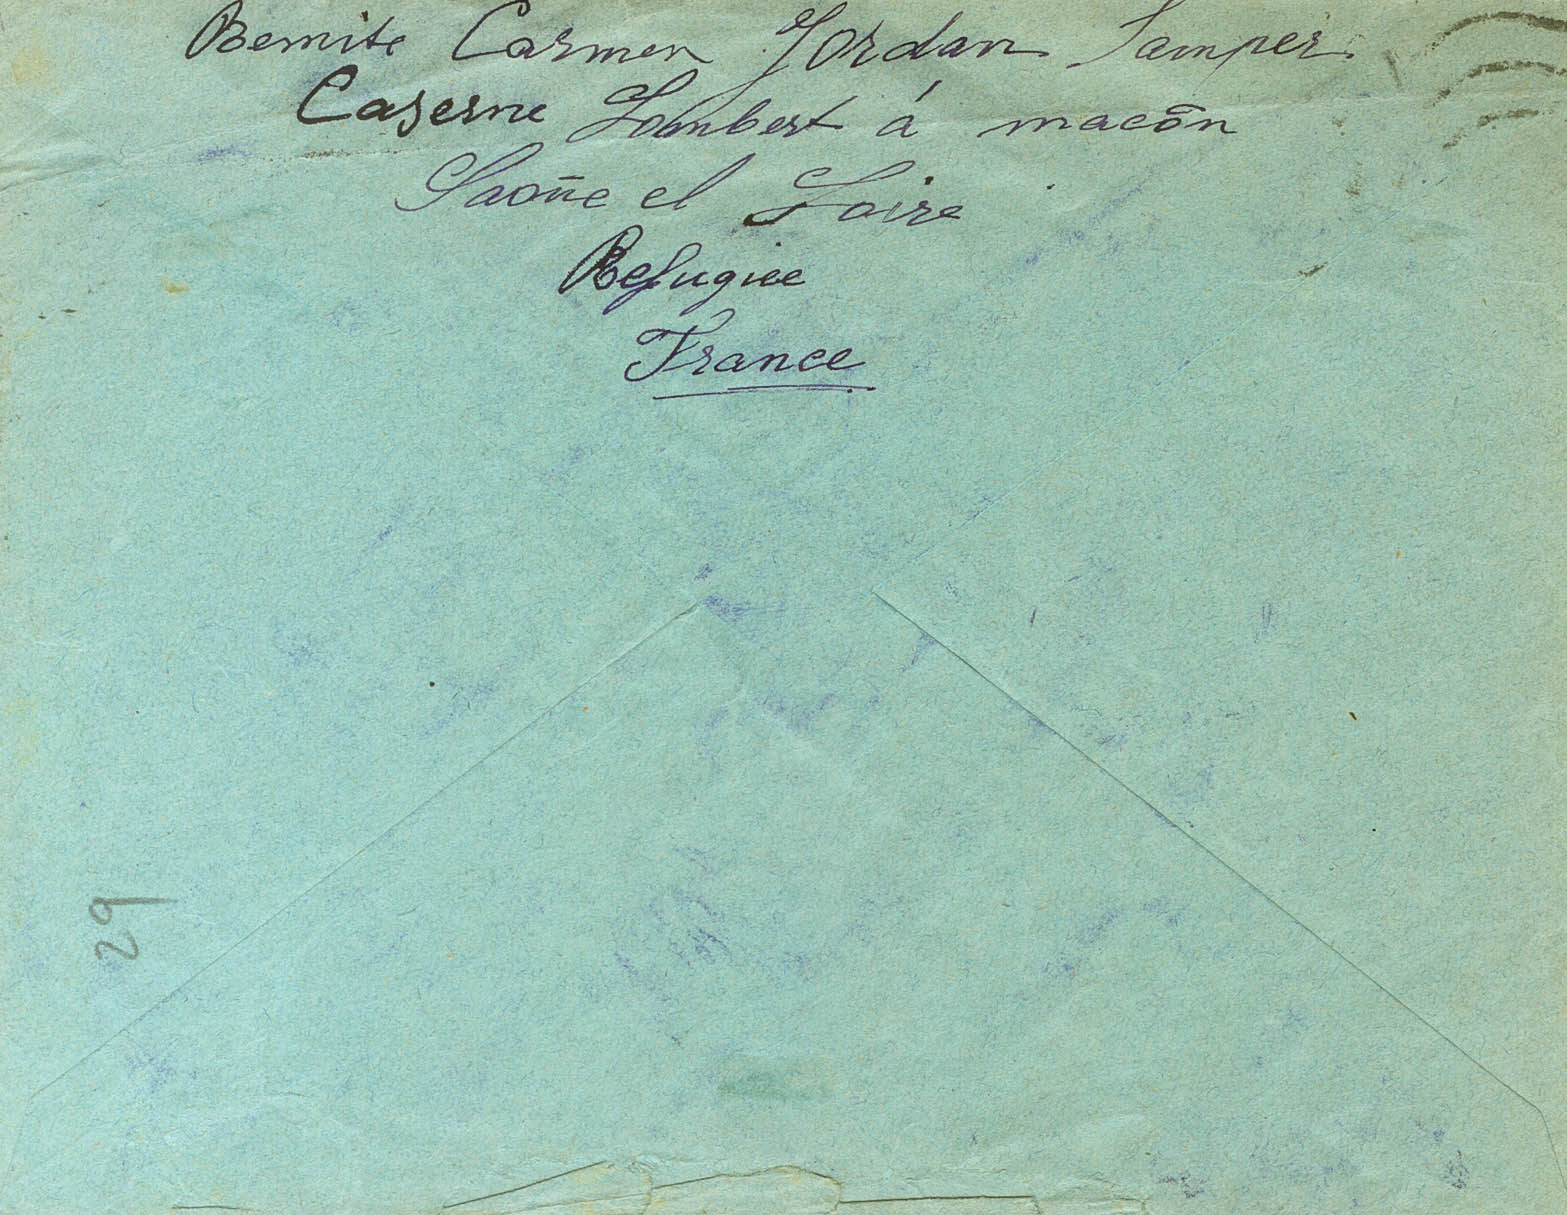 Remite Carmen Jordan Samper
Caserne Lombert á macōn
Saoñe et Loire
Refugiee
France
29